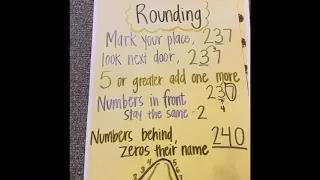 Rounding
Mark your place, 237
look next door, 237
5 or greater add one more
Numbers in front 237
Stay the same - 2 4
Numbers behind,
zeros their name 240
4 5
3 6